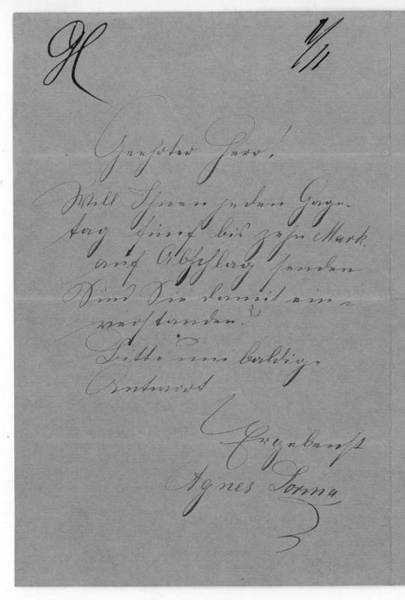 Geehrter Herr!
Will Ihnen jeden Gage-
tag fünf bis zehn Mark
auf Abschlag senden
Sind Sie damit ein-
verstanden?
Bitte um baldige
Antwort
Ergebenst
Agnes Sorma